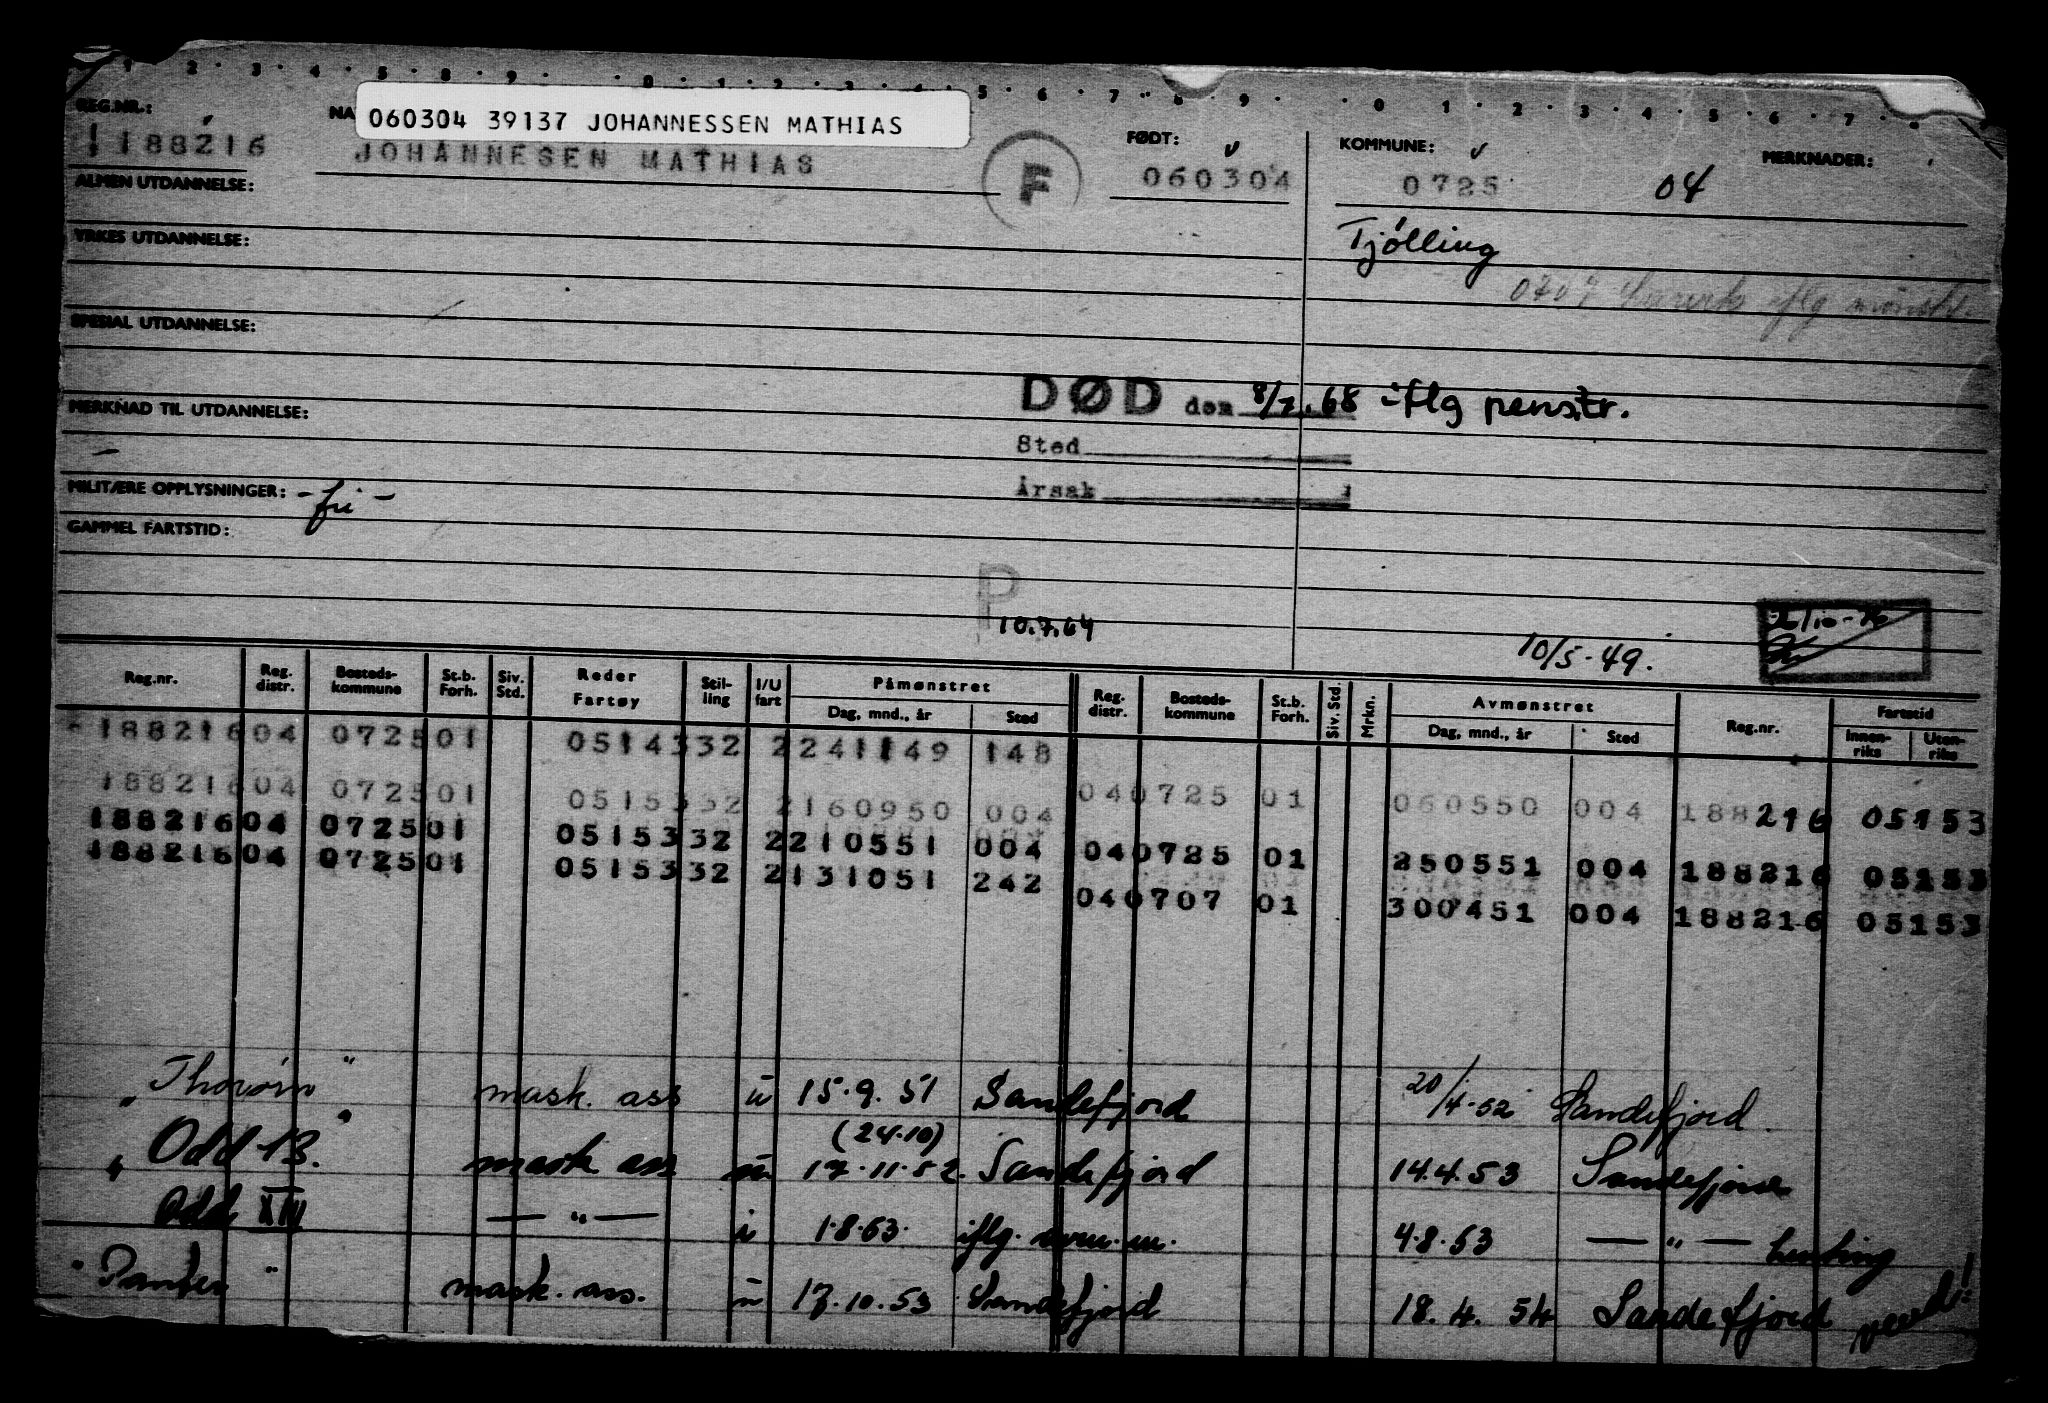 1 2 3 4 5 8 9 0 1 2 3 4 5 6 7 8 9 0 1 2 3 4 5 6 7 8
REG.NR.: 060304 39137 JOHANNESSEN MATHIAS FØDT: KOMMUNE: MERKNADER:
188216 JOHANNESEN MATHIAS F 060304 0725 04
ALMEN UTDANNELSE:
Tjølling
YRKES UTDANNELSE:
SPESIAL UTDANNELSE:
DØD den 8/7.68 iflg pens.tr.
MERKNAD TIL UTDANNELSE:
Sted
MILITÆRE OPPLYSNINGER: - fri -
Årsak
GAMMEL FARTSTID:
P
10.7.64
10/5-49.
Reg.nr. Reg. distr. Bosteds-kommune St.b. Forh. Siv. Std. Reder Fartøy Stil-ling I/U fart Påmønstret Dag, mnd., år Sted Reg. distr. Bosteds-kommune St.b. Forh. Siv. Std. Mrkn. Avmønstret Dag, mnd., år Sted Reg.nr. Fartstid Innen-riks Uten-riks
188216 04 0725 01 0514332 2 241149 148
188216 04 0725 01 0515332 2 160950 004 04 0725 01 060550 004 188216 05153
188216 04 0725 01 0515332 2 210551 004 04 0725 01 250551 004 188216 05153
188216 04 0725 01 0515332 2 131051 242 04 0707 01 300451 004 188216 05153
" Thorørn " mask. ass u 15.9.51 Sandefjord 20/4-52 Sandefjord
(24.10)
" Odd 13. " mask ass u 17.11.52. Sandefjord 14.4.53 Sandefjord
Odd XIV — " — i 1.8.53. iflg. 4.8.53 — " —
" Panter " mask. ass. u 17.10.53 Sandefjord 18.4.54 Sandefjord